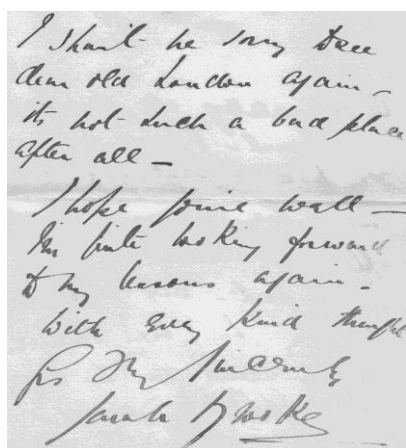 I shan't be sorry to see
dear old London again –
its not such a bad place
after all –
I hope you're well –
I'm quite looking forward
to my lessons again.
With every kind thought
Yrs Very Sincerely
Sarah Brooke